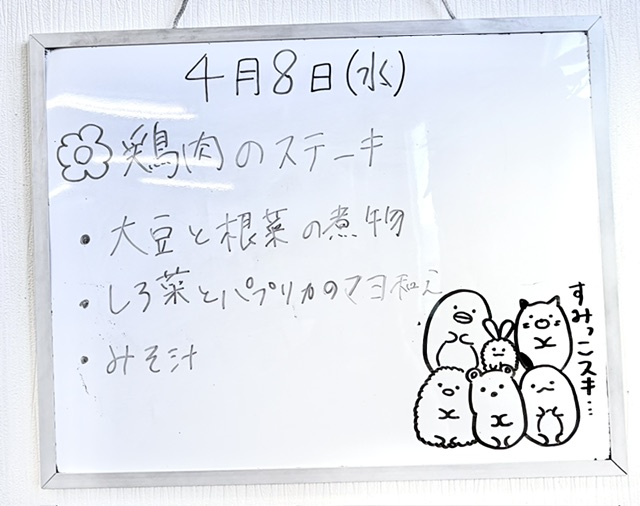 4月8日(水)
鶏肉のステーキ
・大豆と根菜の煮物
・しろ菜とパプリカのマヨ和え
・みそ汁
すみっこスキ…